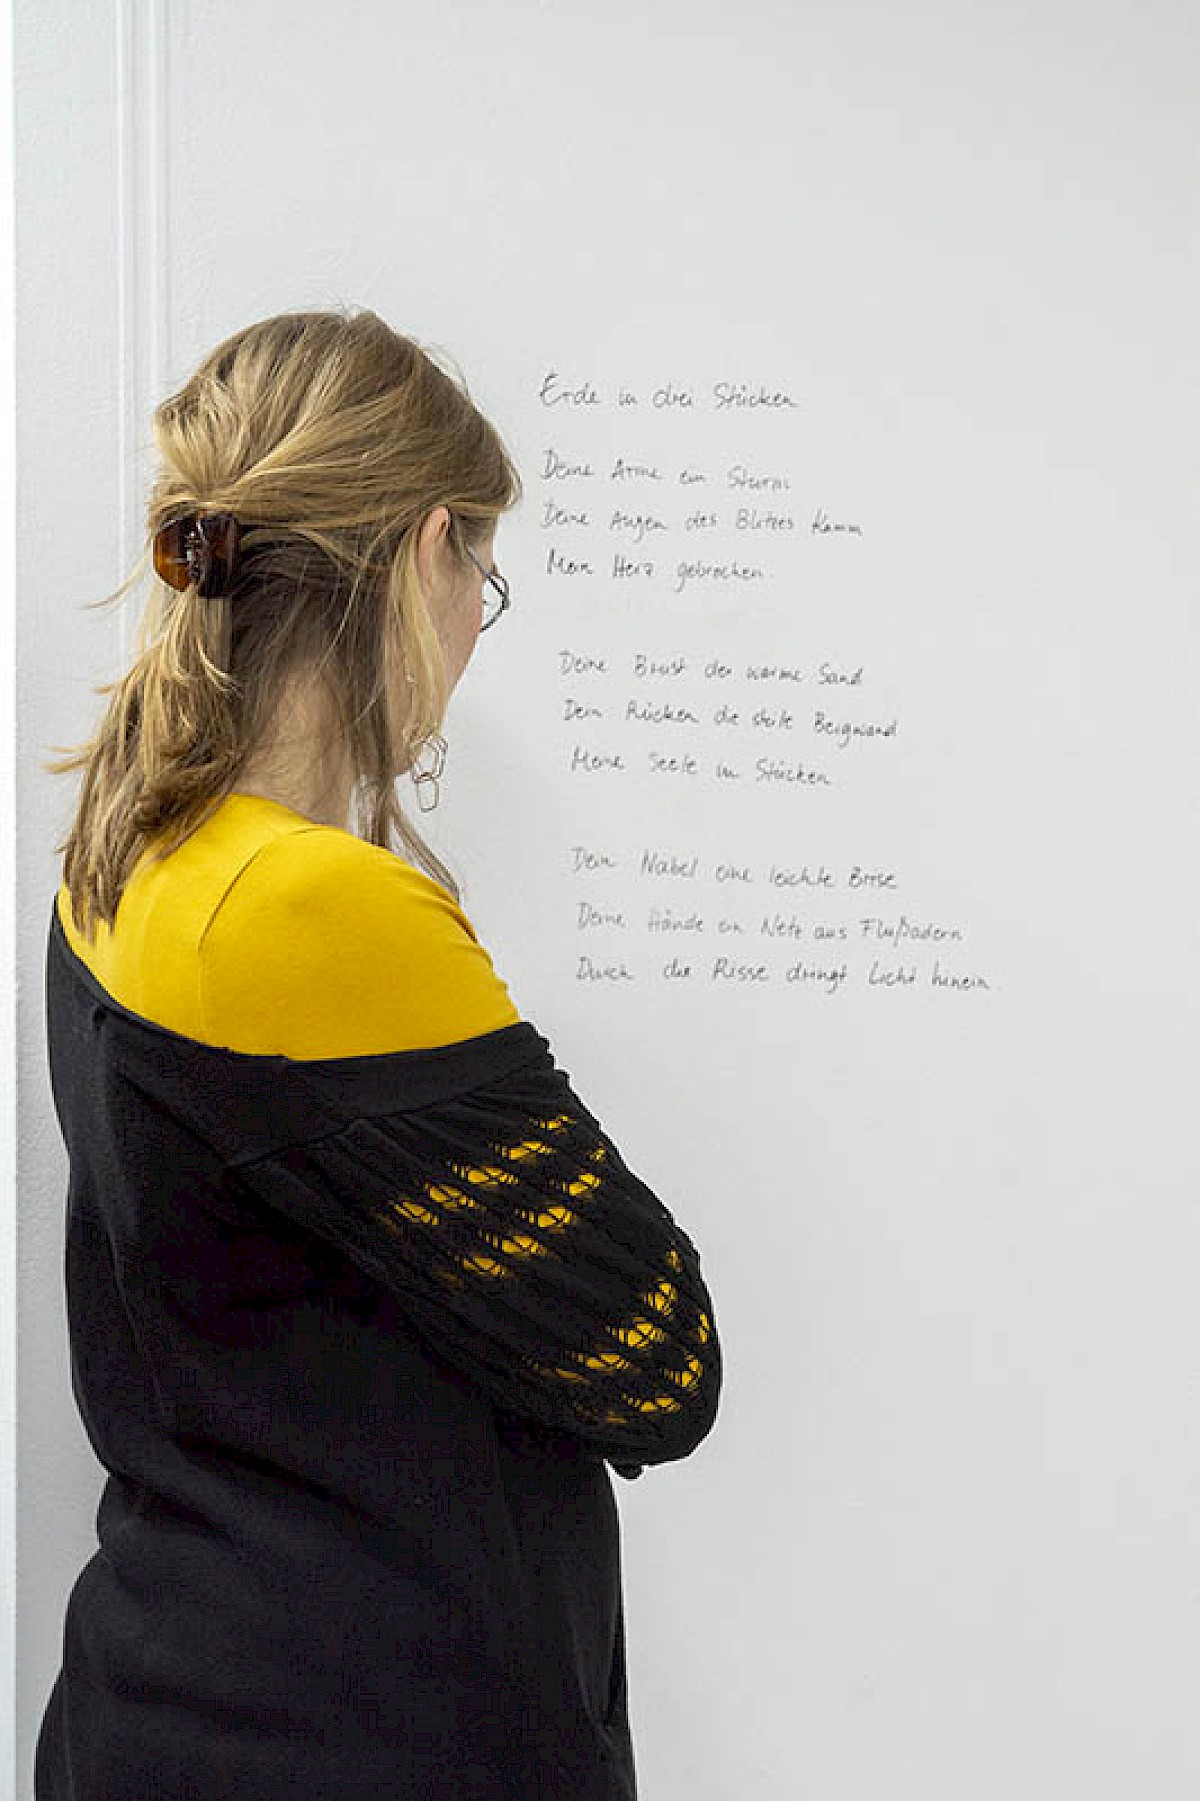 Erde in drei Stücken
Deine Arme ein Sturm
Deine Augen des Blitzes Kamm
Mein Herz gebrochen.
Deine Brust der warme Sand
Dein Rücken die steile Bergwand
Meine Seele in Stücken
Dein Nabel eine leichte Brise
Deine Hände ein Netz aus Flußadern
Durch die Risse dringt Licht hinein.